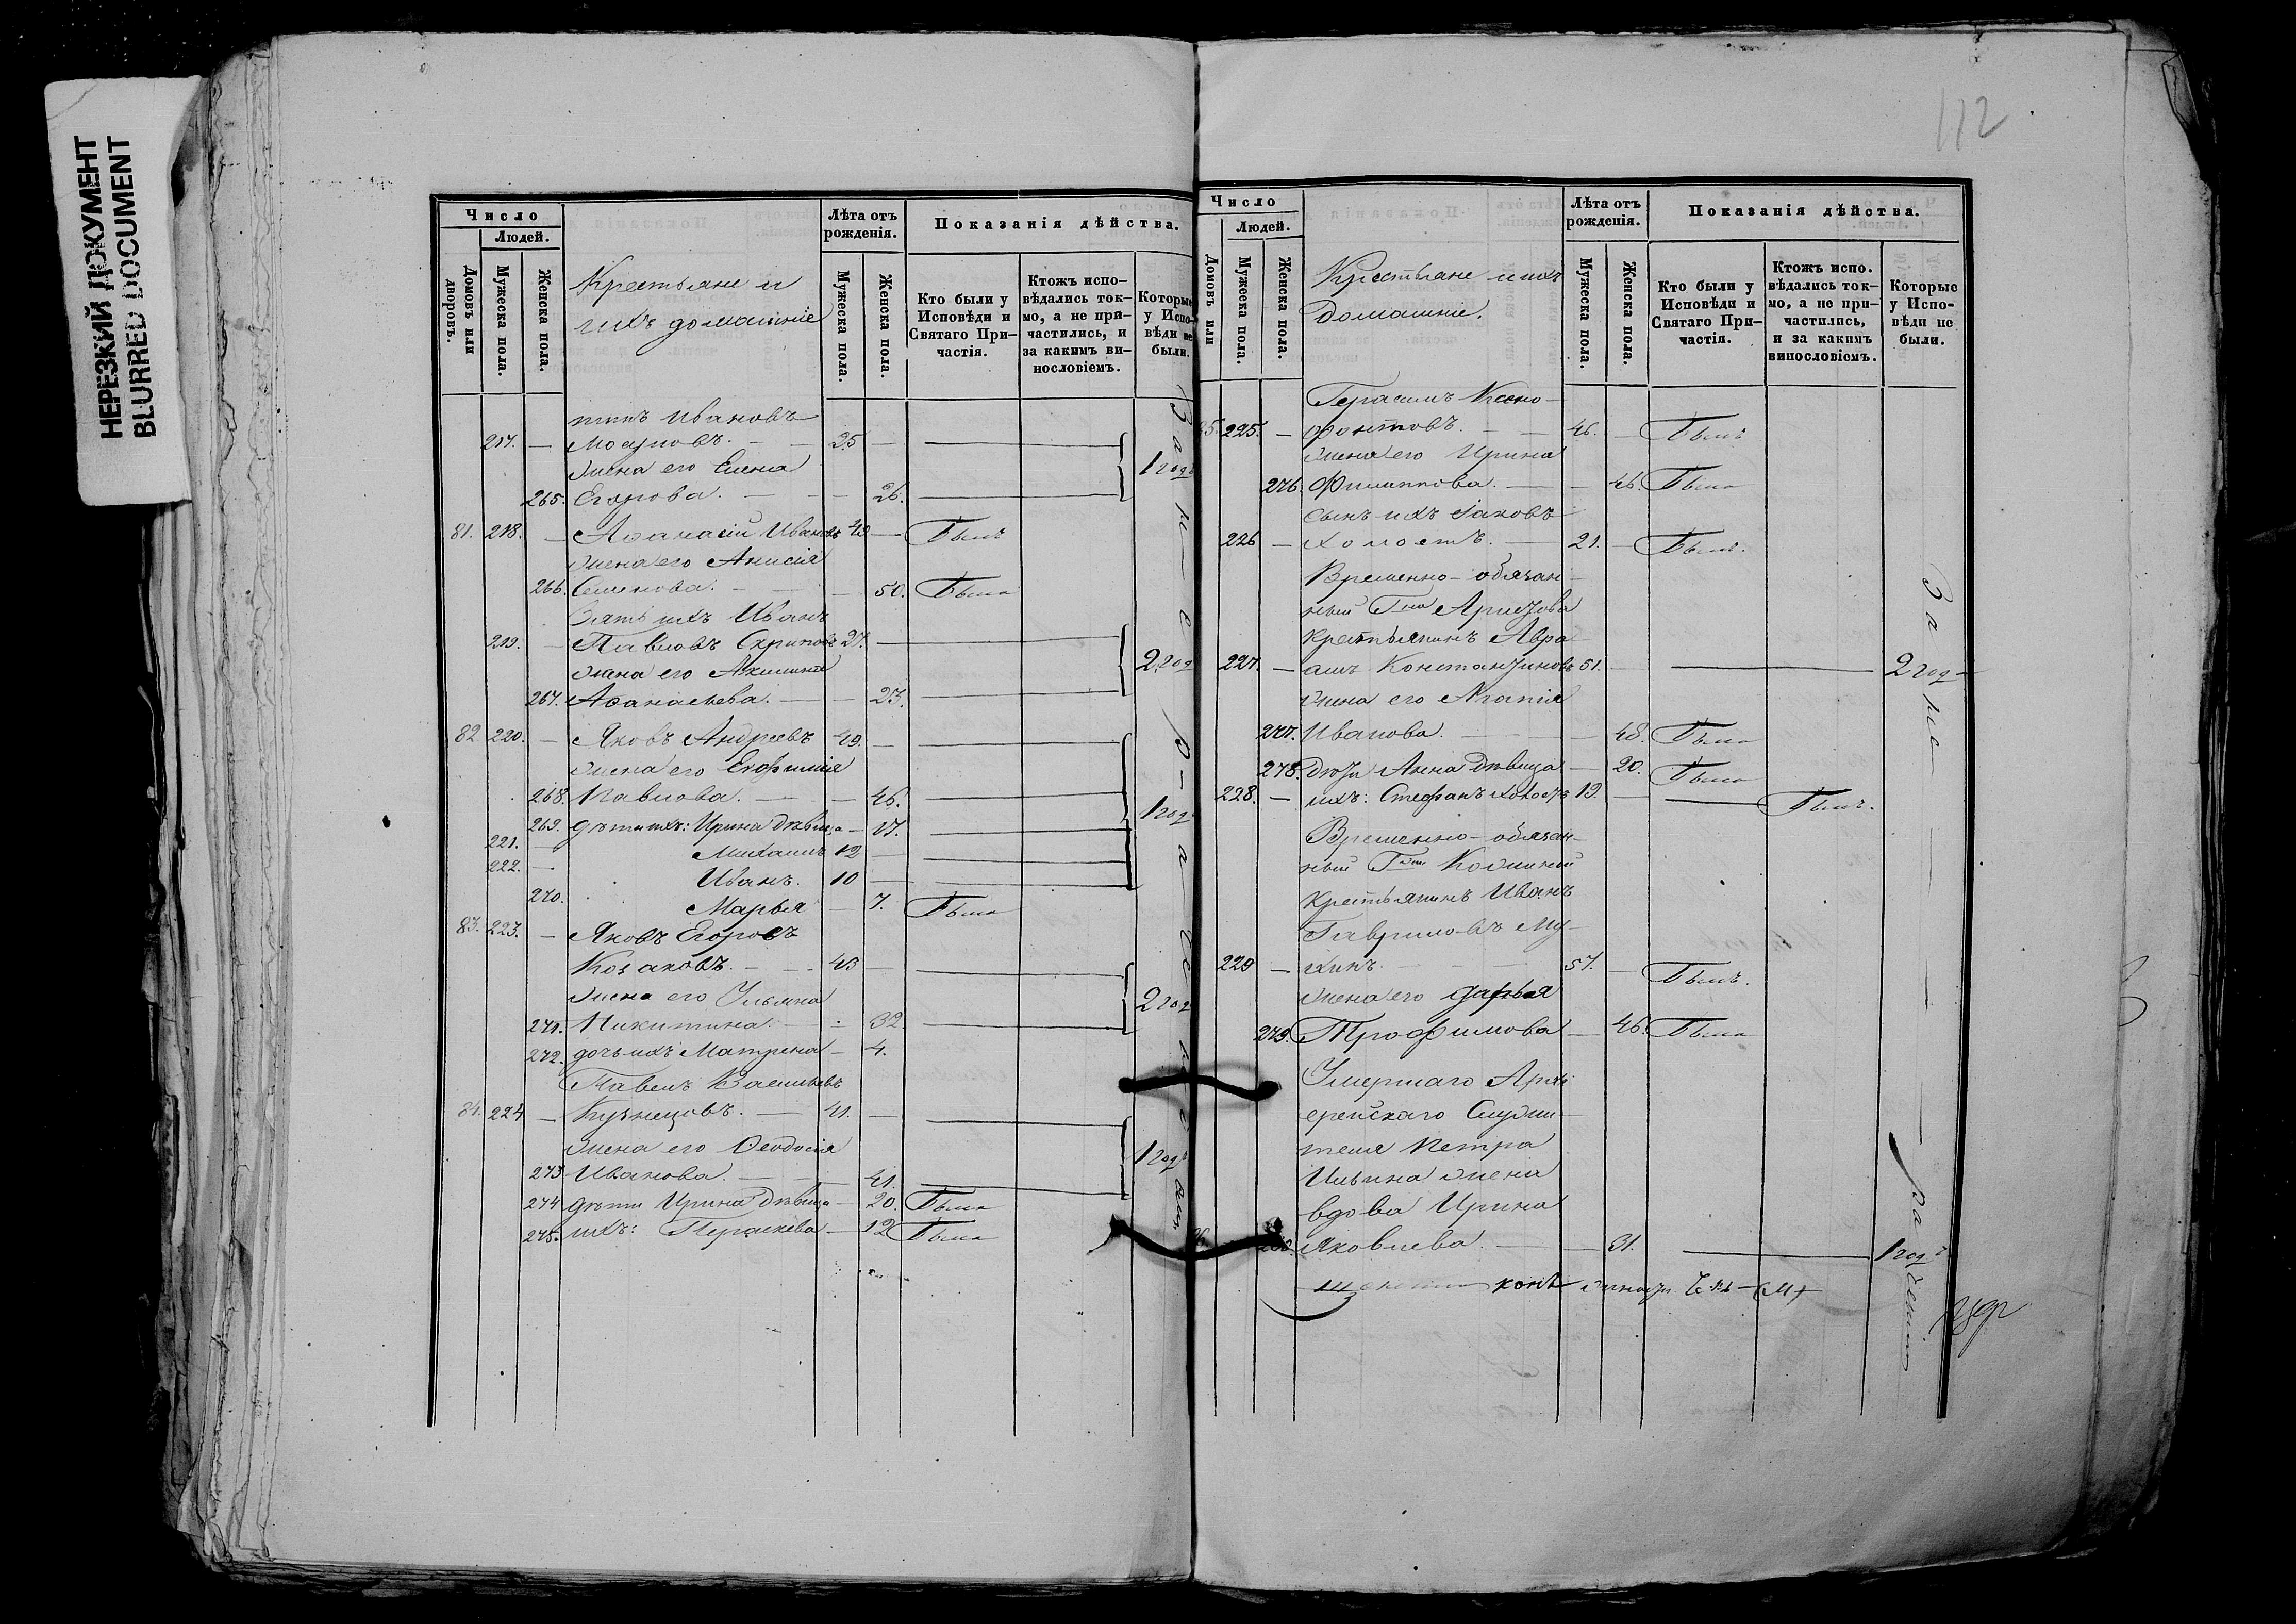 НЕРЕЗКИЙ ДОКУМЕНТ
BLURRED DOCUMENT
Число
Людей.
Домовъ или дворовъ.
Мужеска пола.
Женска пола.
Крестьяне и
ихъ домашніе
Лѣта отъ рожденія.
Мужеска пола.
Женска пола.
Показанія дѣйства.
Кто были у Исповѣди и Святаго Причастія.
Ктожъ исповѣдались токмо, а не причастились, и за какимъ винословіемъ.
Которые у Исповѣди не были.
Ивановъ
217. — 25 —
жена его Елена
265. Егорова. — — 26. 1 годъ
81. 218. — Аѳанасій Ивановъ 49 — Былъ
жена его Анисія
266. Семенова. — — 50. Была
Зять ихъ Иванъ
219. — Павловъ 27. —
жена его Акилина 2 год
267. Аѳанасьева. — — 23.
82. 220. — Яковъ Андреевъ 49. —
жена его Евфимія
268. Павлова. — — 46.
269. дѣти ихъ: Ирина дѣвица — 17. 1 год
221. — Михаилъ 12 —
222. — Иванъ. 10 —
270. Марья — 7. Была
83. 223. — Яковъ Егоровъ
Козаковъ. — 43 —
жена его Ульяна 2 год
271. Никитина. — 32
272. дочь ихъ Матрена — 4.
Павелъ Васильевъ
84. 224 — Кузнецовъ. — 41. —
жена его Ѳеодосія 1 годъ
273 Иванова. — 41.
274 дѣти Ирина дѣвица — 20. Была
275. ихъ: Параскева — 12 Была
112
Число
Людей.
Домовъ или
Мужеска пола.
Женска пола.
Крестьяне и ихъ
домашніе.
Лѣта отъ рожденія.
Мужеска пола.
Женска пола.
Показанія дѣйства.
Кто были у Исповѣди и Святаго Причастія.
Ктожъ исповѣдались токмо, а не причастились, и за какимъ винословіемъ.
Которые у Исповѣди не были.
Герасимъ Ксено-
85. 225. — фонтовъ. — 46. — Былъ
жена его Ирина
276. Филиппова. — — 46. Была
сынъ ихъ Іаковъ
226 — холостъ. — 21. — Былъ.
Временно-обязан-
ный Г-на
крестьянинъ Авра-
227. — амъ Константиновъ 51. — 2 год
жена его Агапія
277. Иванова. — — 48. Была
278. дѣти Анна дѣвица — 20. Была
228. — ихъ: Стефанъ холостъ 19. — Былъ.
Временно-обязан-
ный
крестьянинъ Иванъ
Гавриловъ Му-
229 — хинъ. — 57. — Былъ.
жена его Дарья
279. Трофимова — 46. Была
Умершаго Архі-
ерейскаго Служи-
теля Петра
Ильина жена
вдова Ирина
280. Яковлева. — — 31. 1 годъ